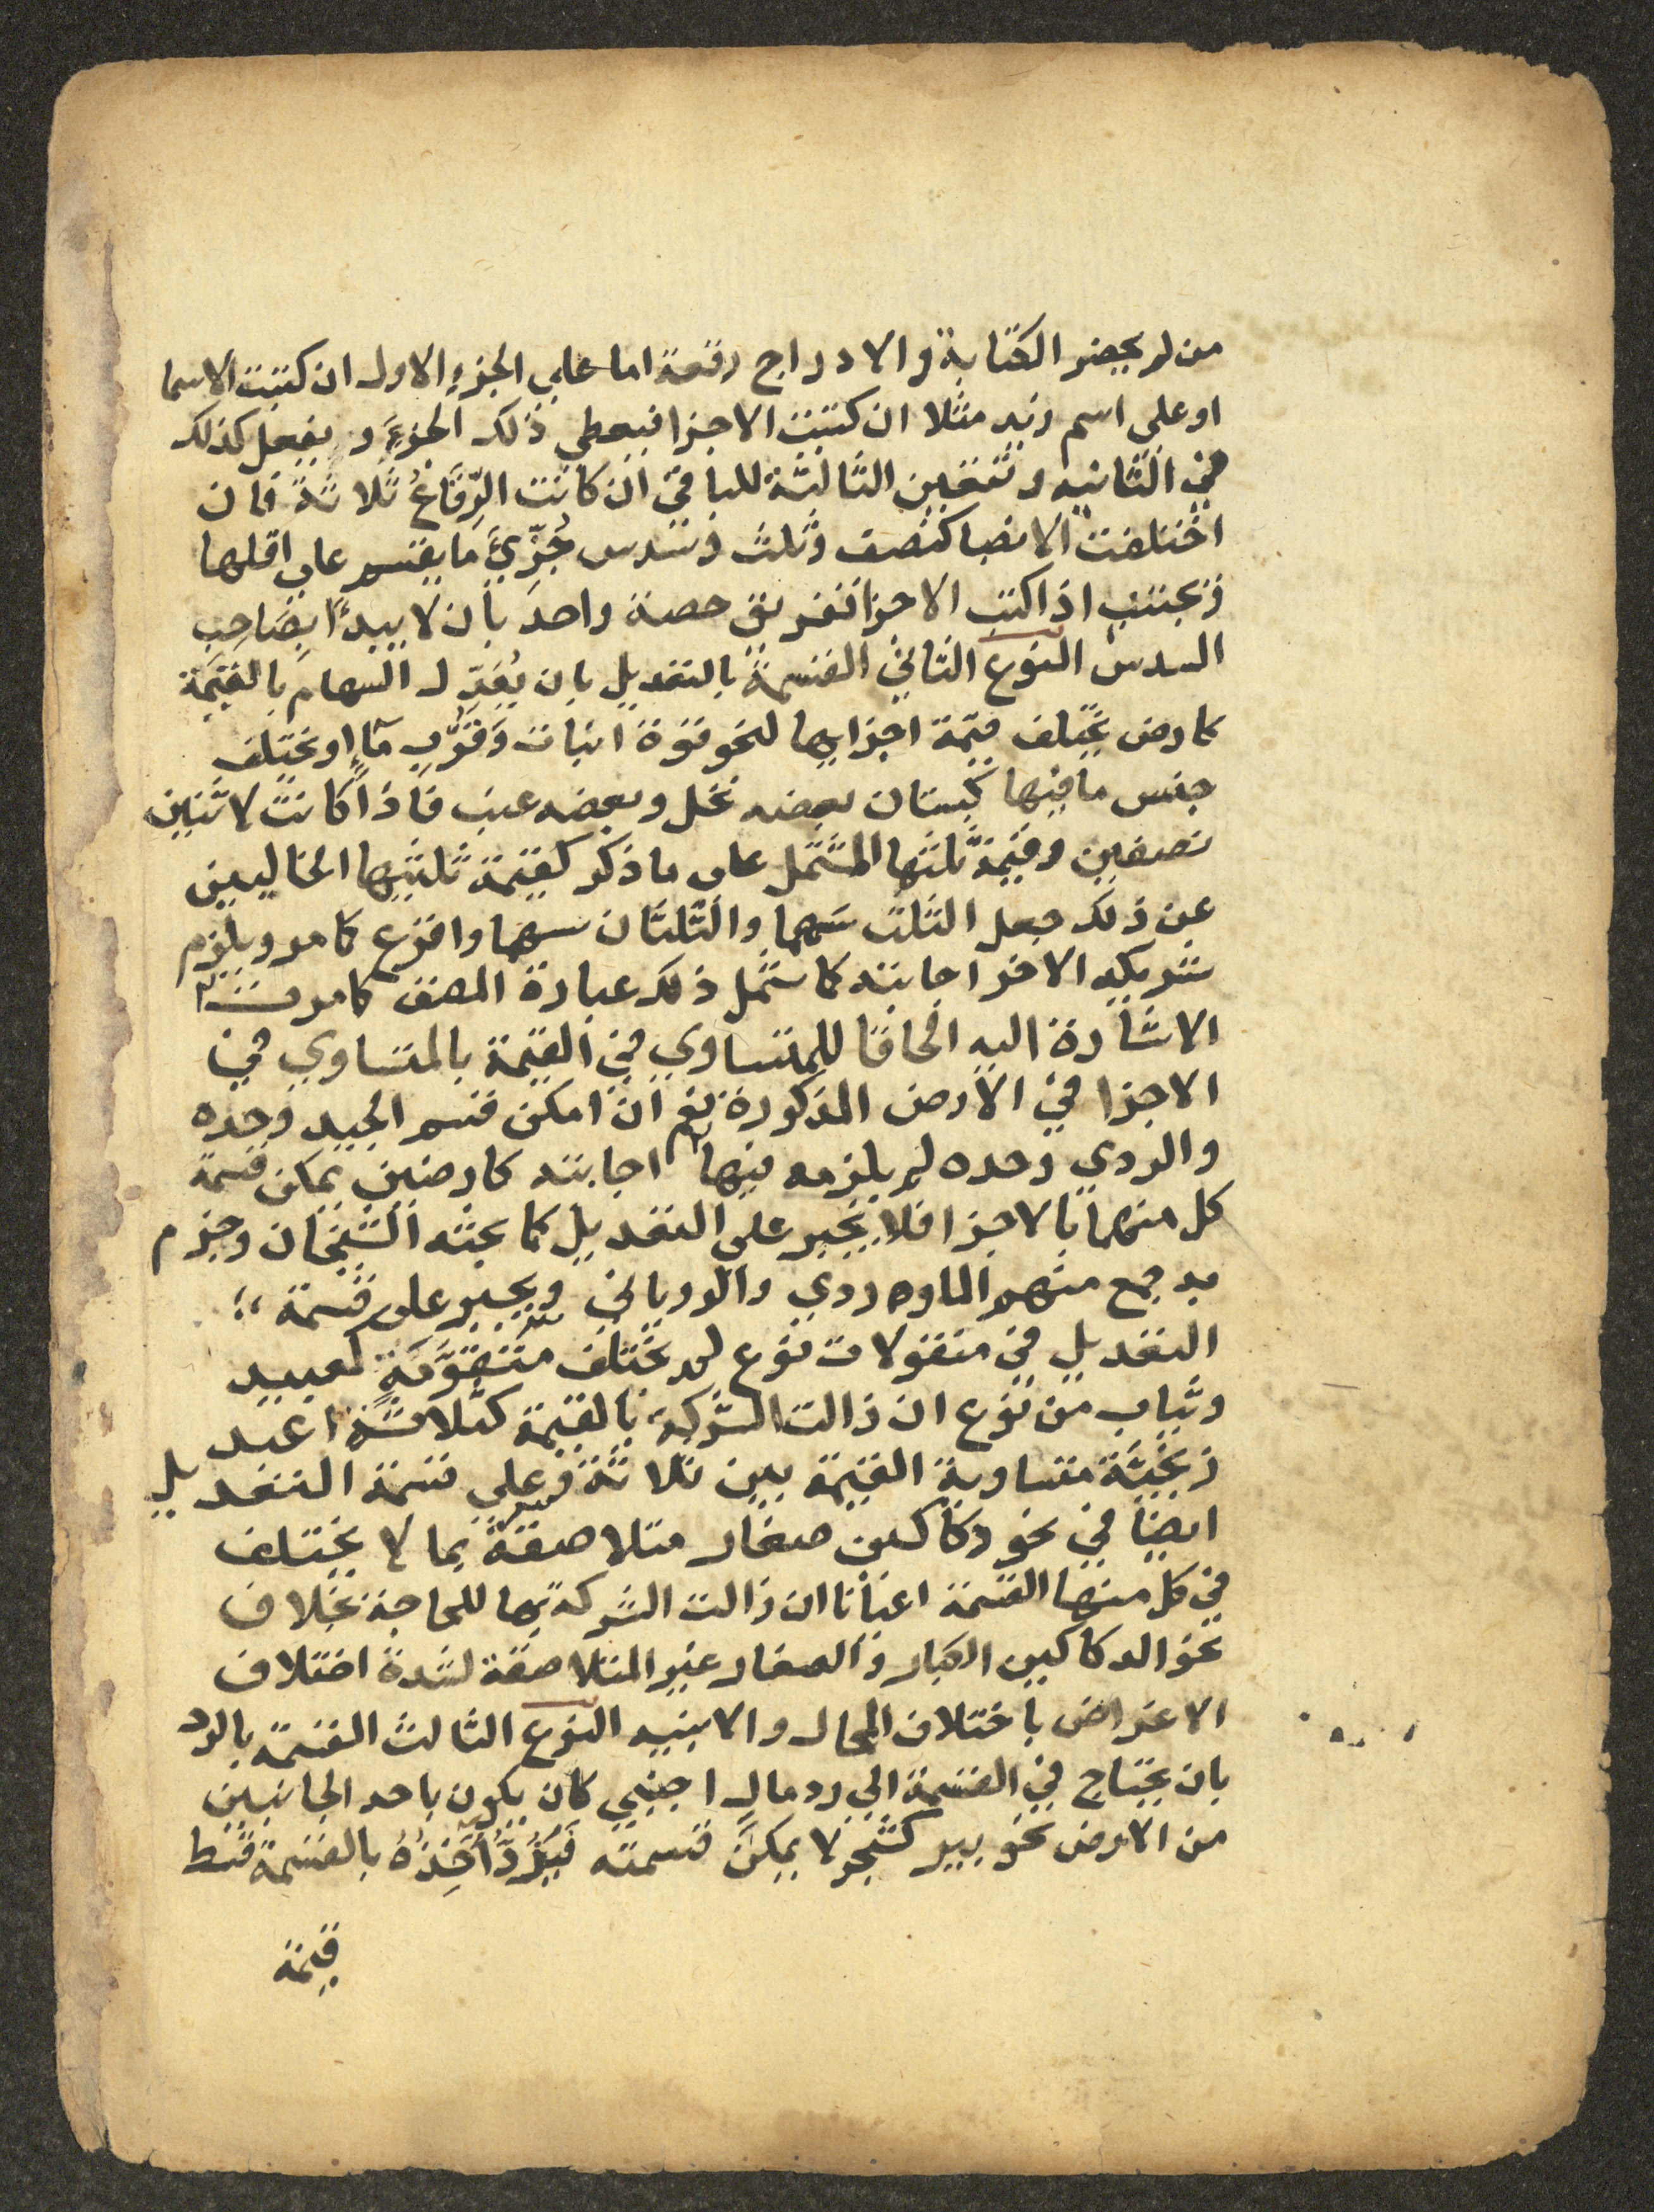 من لم يحضر الكتابة والادراج رقعة اما على الجزء الاول ان كتبت الاسما
او على اسم زيد مثلا ان كتبت الاجزا فيعطي ذلك الجزءَ ويفعل كذلك
في الثانيه وتتعين الثالثة للباقي ان كانت الرِّقاعُ ثلاثةً فان
اختلفت الانصبا كنصف وثلث وسدس جُزِّئَ ما يقسم على اقلها
ويجتنب اذا كتب الاجزا تفريق حصة واحد بان لا يبدءَ بصاحب
السدس النوع الثاني القسمة بالتعديل بان يُعَدِّل السهام بالقيمة
كارض يختلف قيمة اجزايها لنحو قوة انبات وقُرْب ماءٍ او يختلف
جنس ما فيها كبستان بعضه نخل وبعضه عنب فاذا كانت لاثنين
نصفين وقيمة ثلثها المشتمل على ما ذكر كقيمة ثلثيها الخاليين
عن ذلك جعل الثلث سهما والثلثان سهما واقرع كامر ويلزم
شريكه الاخر اجابته كما شمل ذلك عبارة المصنف كامرت
الاشارة اليه الحاقا للمتساوي في القيمة بالمتساوي في
الاجزا في الارض المذكورة نعم ان امكن قسم الجيد وحده
والردي وحده لم يلزمه فيها اجابته كارضين يمكن قسمة
كل منهما بالاجزا فلا يجبر على التعديل كما بحثه الشيخان وجزم
به جمع منهم الماوردي والروياني ويجبر على قسمة
التعديل في منقولات نوع لم يختلف متقوَّمَةٍ كعبيد
وثياب من نوع ان زالت الشركة بالقيمة كثلاثة اعبد
زنجيَّة متساوية القيمة بين ثلاثة وعلى قسمة التعديل
ايضا في نحو دكاكين صغار متلاصقةً مما لا يختلف
في كل منها القسمة اعيانا ان زالت الشركة بها للحاجة بخلاف
نحو الدكاكين الكبار والصغار غير المتلاصقة لشدة اختلاف
الاغراض باختلاف المحال والابنيه النوع الثالث القسمة بالرد
بان يحتاج في القسمة الى رد مالٍ اجنبي كان يكون باحد الجانبين
من الارض نحو بير كشجر لا يمكن قسمته فَيَرُدُّ آخِذُهُ بالقسمة قسط
قيمة